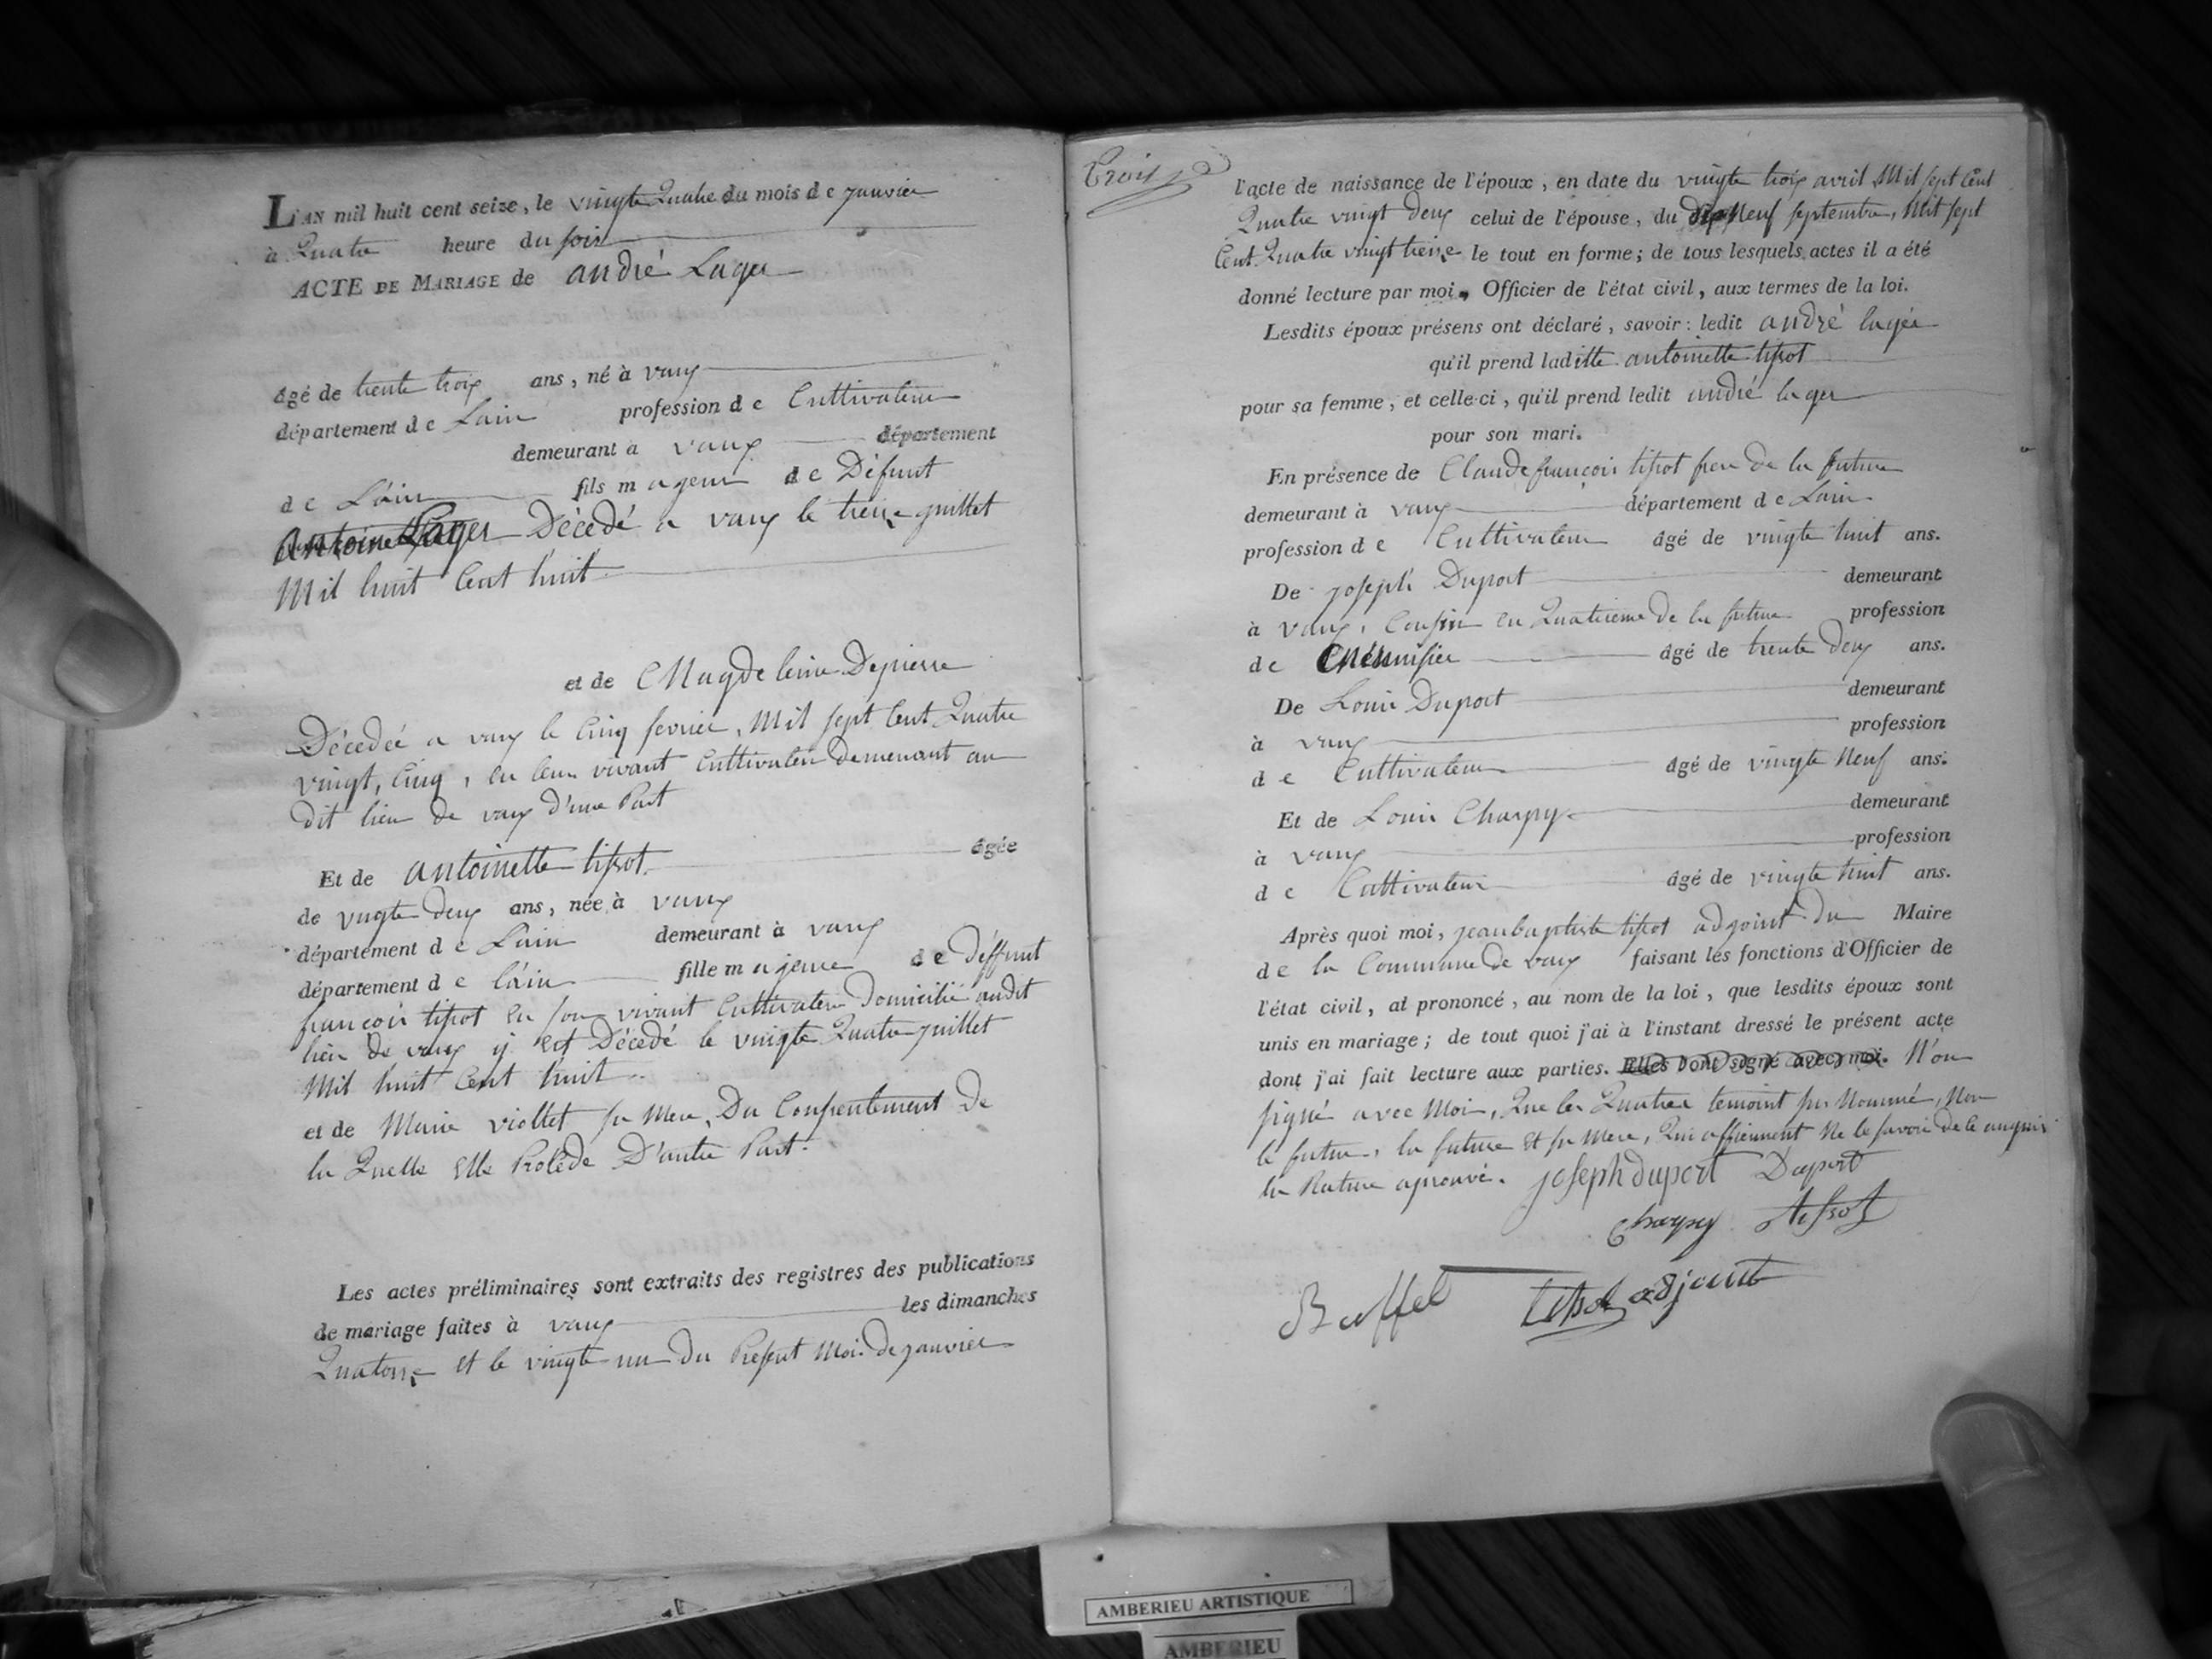 L'AN mil huit cent seize, le vingte Quatre du mois de janvier
à Quatre heure du soir
ACTE DE MARIAGE de andré Lager
âgé de trente trois ans, né à vaux
département de Lain profession de Cultivateur
demeurant à vaux département
de L'ain fils majeur de Défunt
Antoine Lager Décedé a vaux le treize juillet
Mil huit Cent huit
et de Magdeleine Depierre
Décedée a vaux le Cinq fevrier, Mil sept Cent Quatre
vingt, Cinq, en leur vivant Cultivateur demeurant au
dit lieu de vaux d'une Part
Et de antoinette tissot âgée
de vingte deux ans, née à vaux
département de Lain demeurant à vaux
département de l'ain fille majeure de Déffunt
françois tissot en son vivant Cultivateur domicilié audit
lieu de vaux y est Décédé le vingte Quatre juillet
Mil huit Cent huit
et de Marie viollet sa Mere, Du Consentement de
la Quelle Elle Procède D'autre Part.
Les actes préliminaires sont extraits des registres des publications
de mariage faites à vaux les dimanches
Quatorze et le vingte un du Présent Mois de janvier
Trois
l'acte de naissance de l'époux, en date du vingte trois avril Mil sept Cent
Quatre vingt deux celui de l'épouse, du dix Neuf septembre, Mil sept
Cent Quatre vingt treize le tout en forme; de tous lesquels actes il a été
donné lecture par moi, Officier de l'état civil, aux termes de la loi.
Lesdits époux présens ont déclaré, savoir: ledit andré lager
qu'il prend laditte antoinette tissot
pour sa femme, et celle-ci, qu'il prend ledit andré lager
pour son mari.
En présence de Claude françois tissot frere de la future
demeurant à vaux département de Lain
profession de Cultivateur âgé de vingte huit ans.
De joseph Duport demeurant
à vaux, Cousin en Quatrieme de la future profession
de Menuisier âgé de trente deux ans.
De Louis Duport demeurant
à vaux profession
de Cultivateur âgé de vingte Neuf ans.
Et de Louis Charpy demeurant
à vaux profession
de Cultivateur âgé de vingte huit ans.
Après quoi moi, jeanbaptiste tissot adjoint du Maire
de la Commune de vaux faisant les fonctions d'Officier de
l'état civil, ai prononcé, au nom de la loi, que lesdits époux sont
unis en mariage; de tout quoi j'ai à l'instant dressé le présent acte
dont j'ai fait lecture aux parties. Elles ont signé avec moi. N'on
signé avec Moi, Que les Quatre temoint sus Nommé, Non
le futur, la future et sa Mere, Qui affirment Ne le savoir de le anquis
la Rature aprouvé. joseph duport Duport
Charpy tissot
Buffet tissot adjoint
AMBERIEU ARTISTIQUE
AMBERIEU